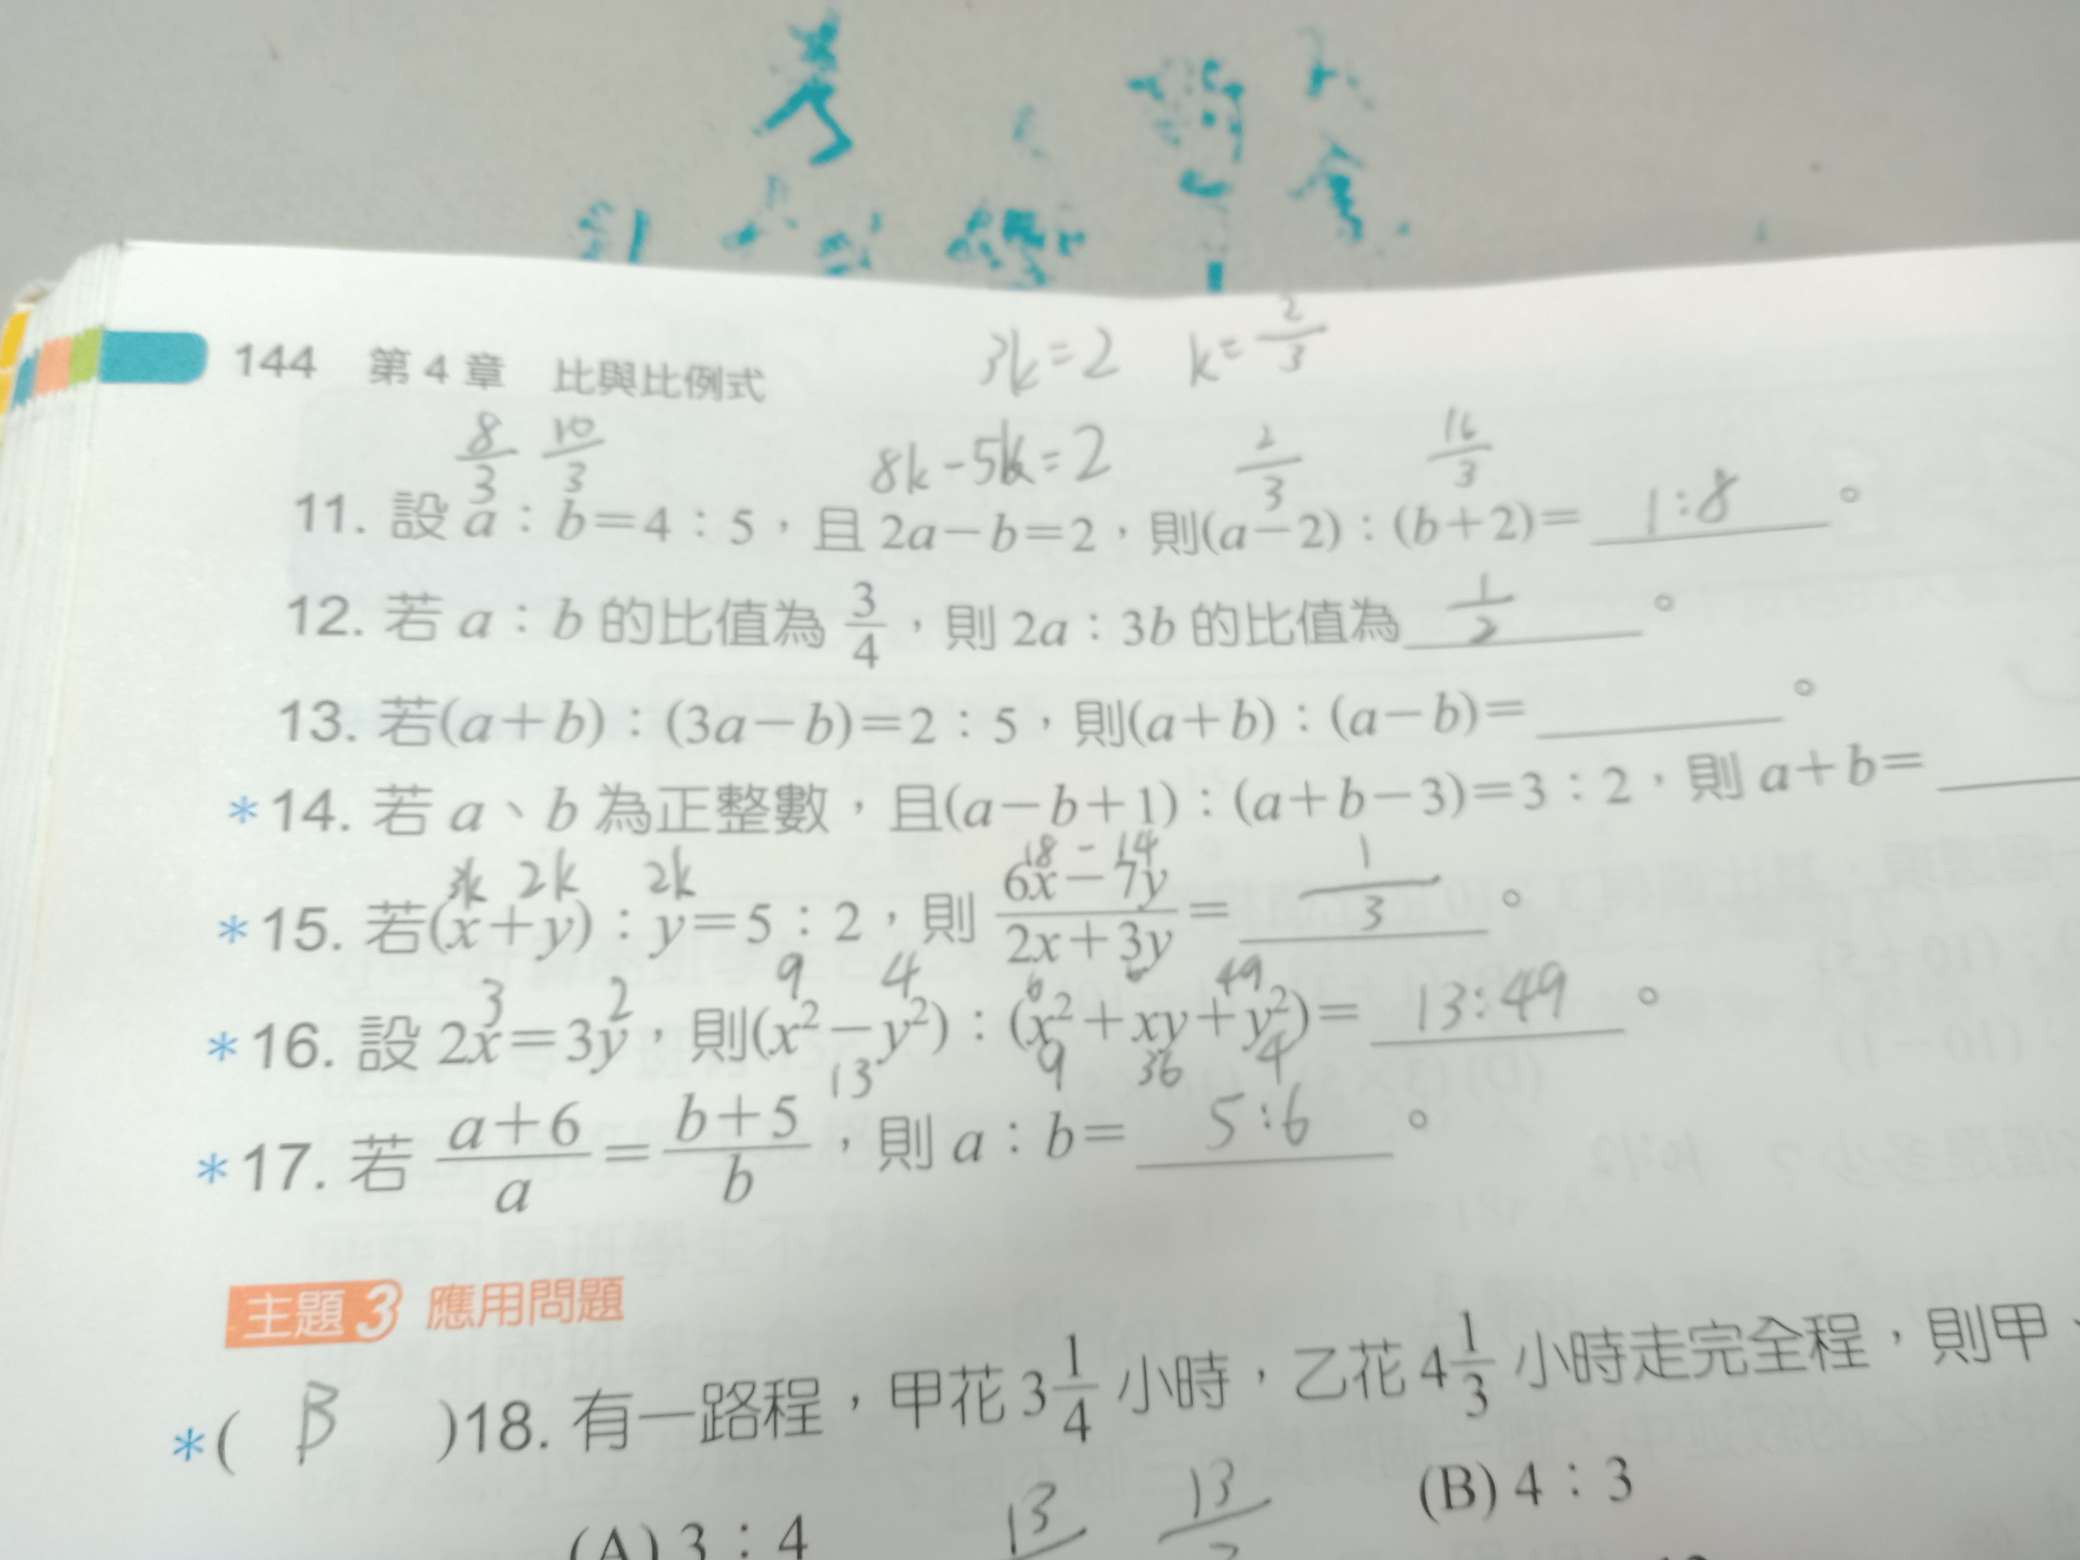 考
3k=2 k=2/3
144 第4章 比與比例式
8/3 10/3 8k-5k=2 2/3 16/3
11. 設 a：b=4：5，且 2a-b=2，則(a-2)：(b+2)= 1:8 。
12. 若 a：b 的比值為 3/4，則 2a：3b 的比值為 1/2 。
13. 若(a+b)：(3a-b)=2：5，則(a+b)：(a-b)=______。
*14. 若 a、b 為正整數，且(a-b+1)：(a+b-3)=3：2，則 a+b=
3k 2k 2k 18-14
*15. 若(x+y)：y=5：2，則 (6x-7y)/(2x+3y)= 1/3 。
6 6
3 2 9 4 49
*16. 設 2x=3y，則(x²-y²)：(x²+xy+y²)= 13:49 。
13 9 36 4
*17. 若 (a+6)/a=(b+5)/b，則 a：b= 5:6 。
主題3 應用問題
*( B )18. 有一路程，甲花 3 1/4 小時，乙花 4 1/3 小時走完全程，則甲、
(A) 3：4 13 13 (B) 4：3